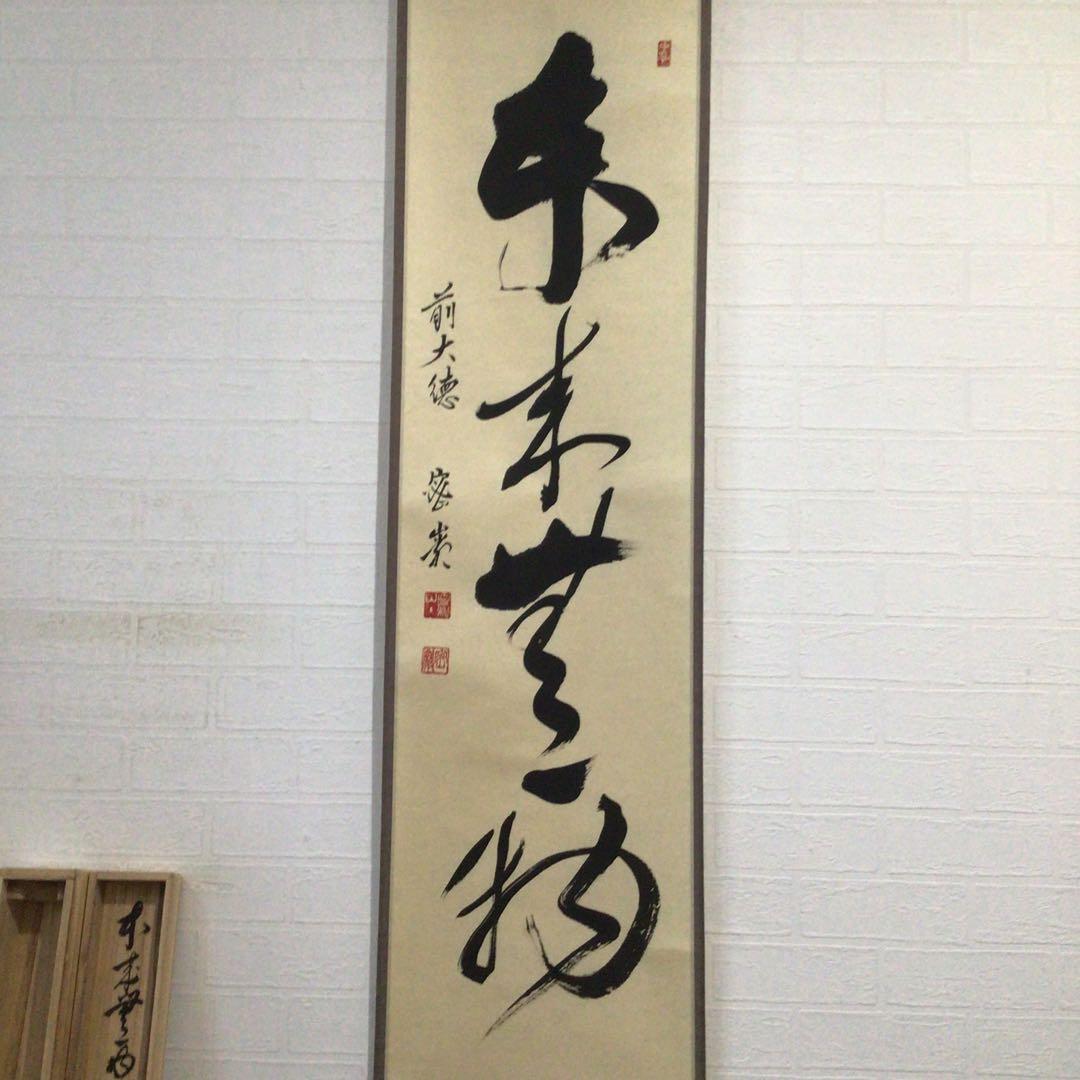 本来無一物
前大徳 密
本来無一物